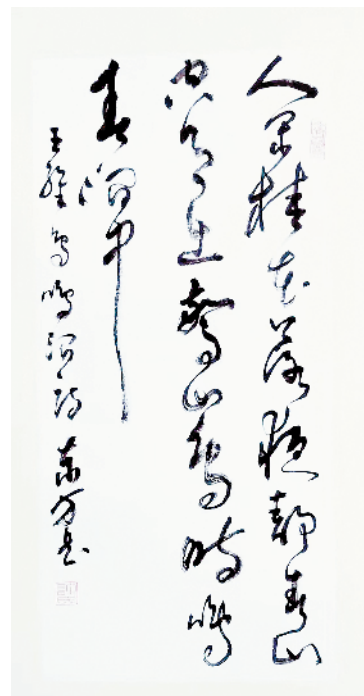 人閒桂花落夜靜春山
空月出驚山鳥時鳴
春澗中
王維鳥鳴澗詩 東方書